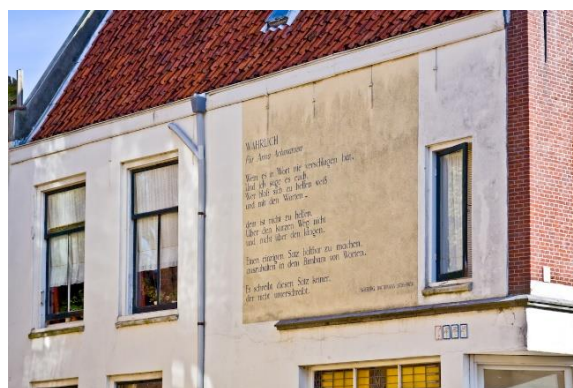 WAHRLICH
Für Anna Achmatova
Wem es ein Wort nie verschlagen hat,
und ich sage es euch,
wer bloß sich zu helfen weiß
und mit den Worten –
dem ist nicht zu helfen.
Über den kurzen Weg nicht
und nicht über den langen.
Einen einzigen Satz haltbar zu machen,
auszuhalten in dem Bimbam von Worten.
Es schreibt diesen Satz keiner,
der nicht unterschreibt.